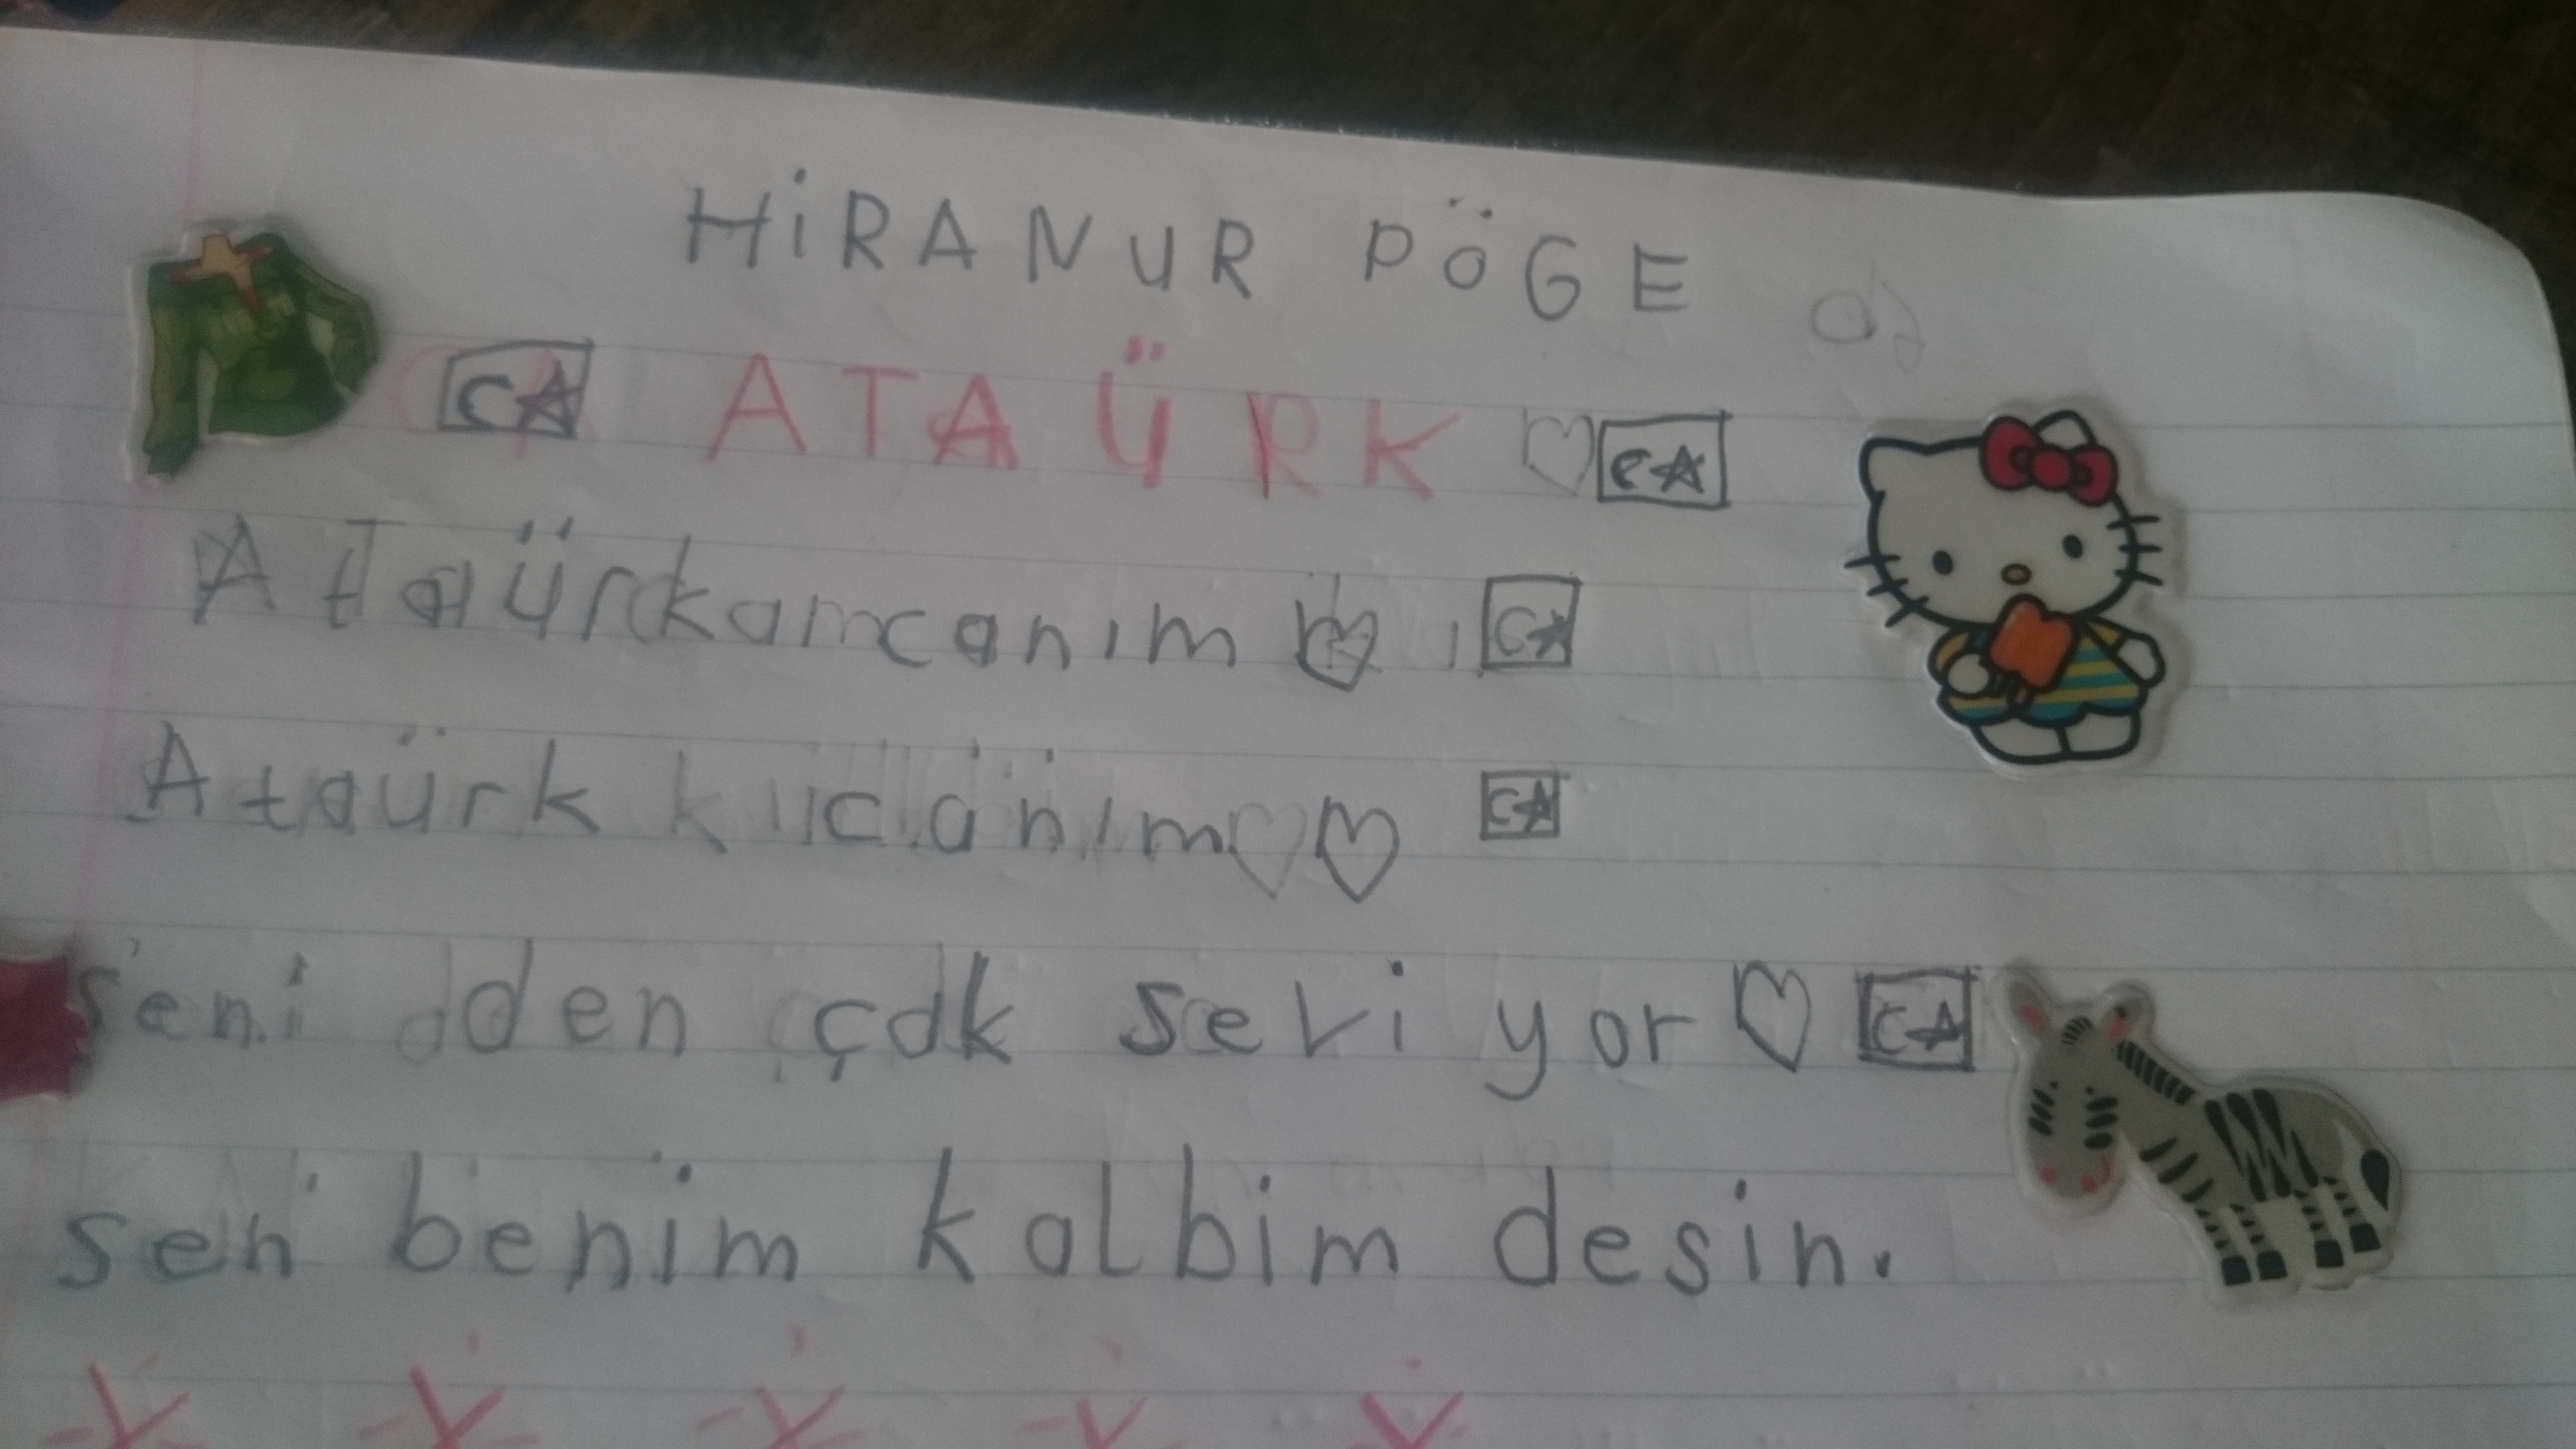 HİRANUR PÖGE
ATAÜRK
Ataürkamcanım
Ataürk kıcanım
seni dden çok seviyor
sen benim kalbim desin.